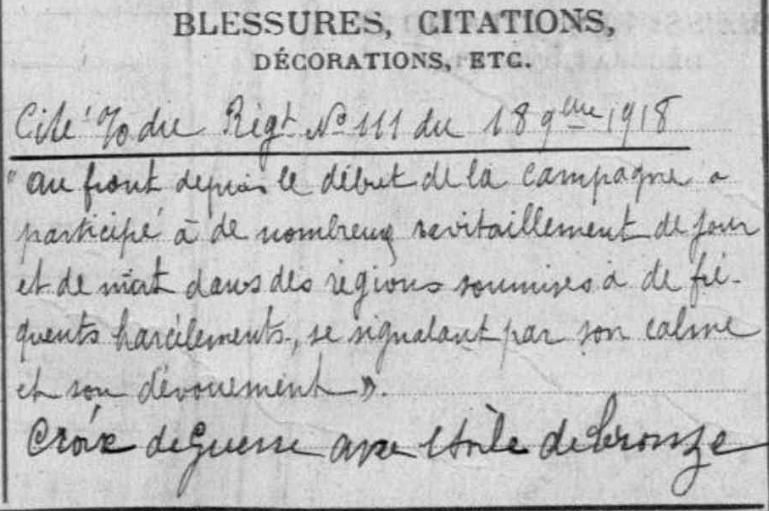 BLESSURES, CITATIONS,
DÉCORATIONS, ETC.
Cité % du Régt No 111 du 18 9bre 1918
"au front depuis le début de la campagne a
participé à de nombreux ravitaillement de jour
et de nuit dans des régions soumises à de fré-
quents harcèlements, se signalant par son calme
et son dévouement ».
Croix de Guerre avec étoile de bronze